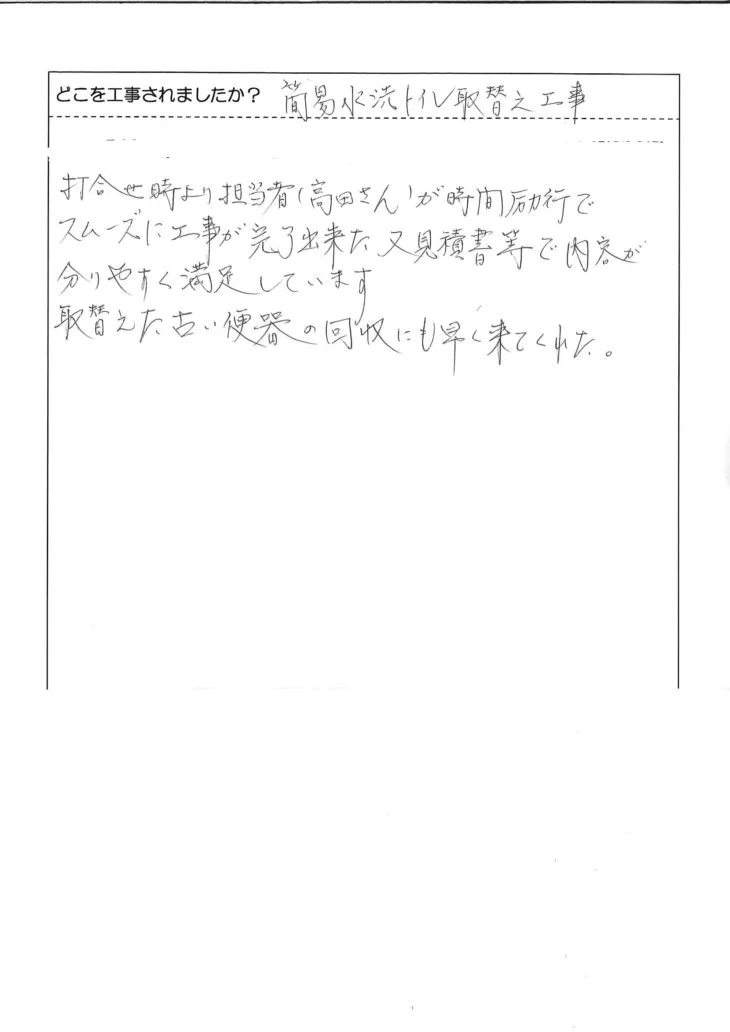 どこを工事されましたか? 簡易水洗トイレ取替え工事
打合せ時より担当者(高田さん)が時間励行で
スムーズに工事が完了出来た 又見積書等で内容が
分りやすく満足しています
取替えた古い便器の回収にも早く来てくれた。